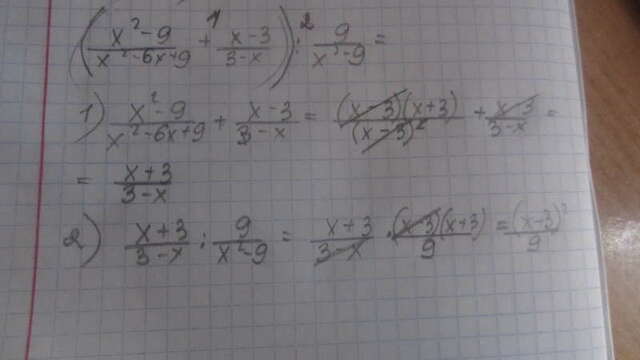 (x²-9/x²-6x+9 +¹ x-3/3-x) :² 9/x²-9 =
1) x²-9/x²-6x+9 + x-3/3-x = (x-3)(x+3)/(x-3)² + x-3/3-x =
= x+3/3-x
2) x+3/3-x : 9/x²-9 = x+3/3-x · (x-3)(x+3)/9 = (x-3)²/9